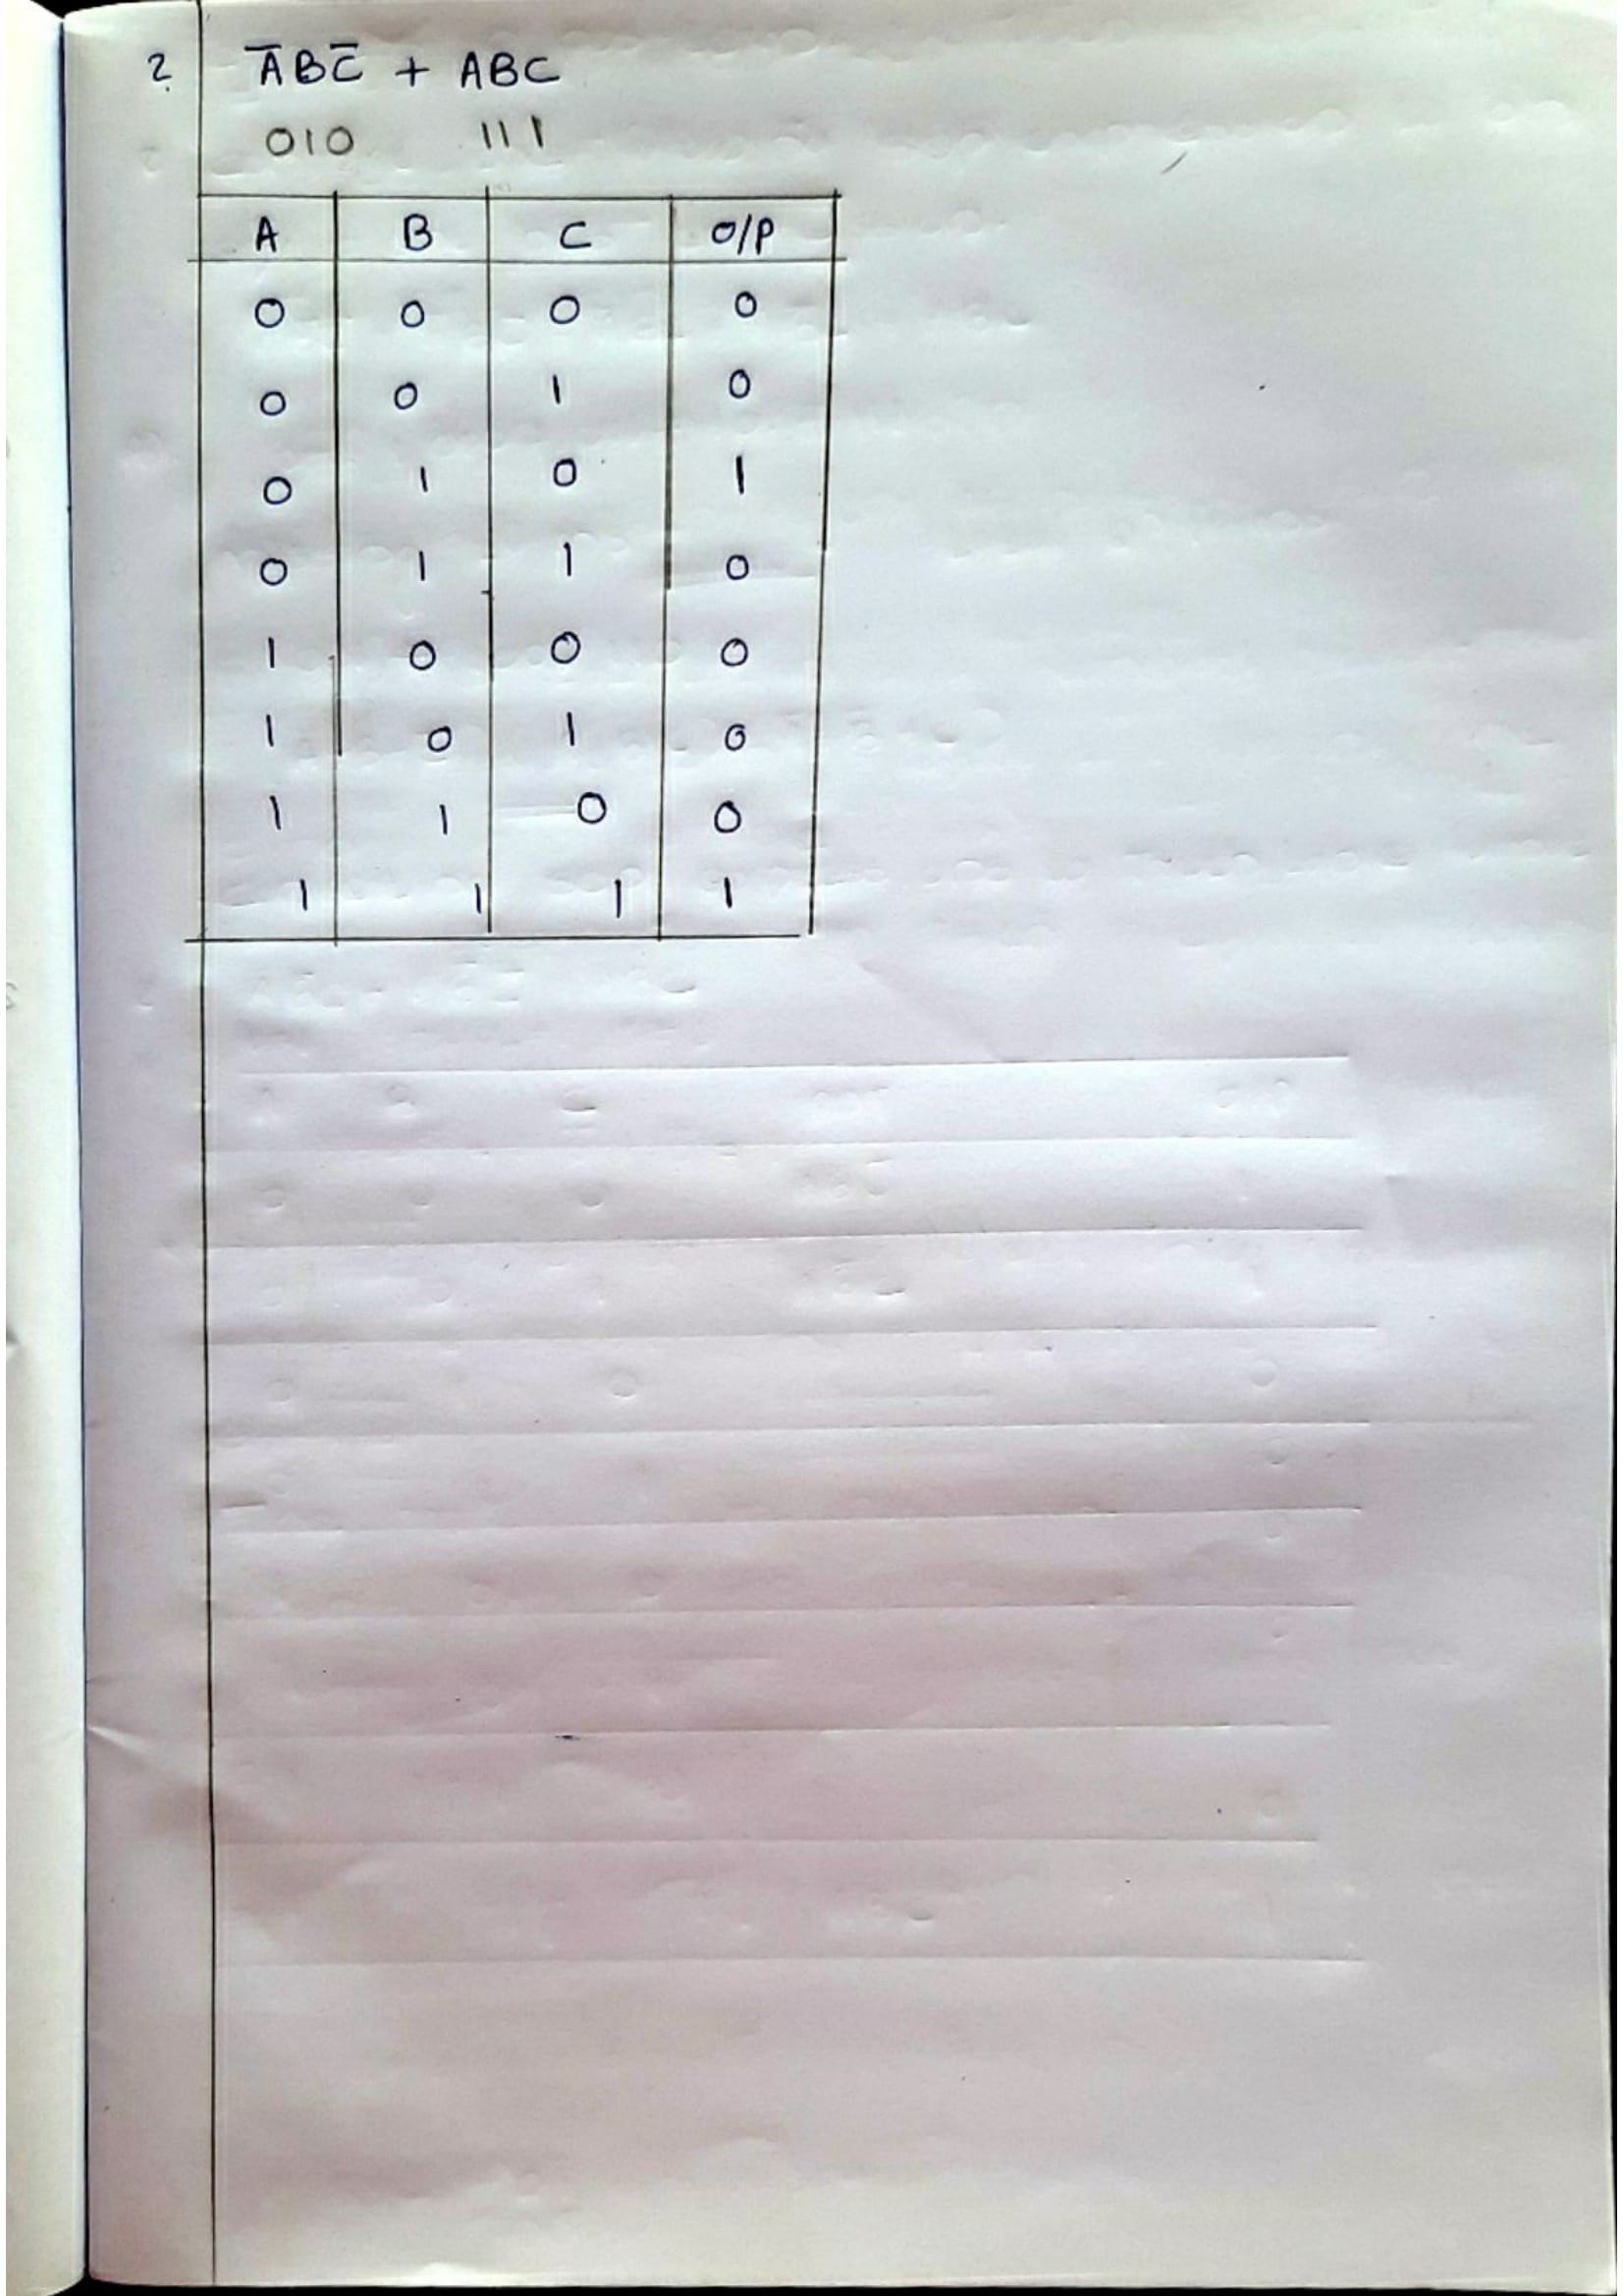 2. A̅BC̅ + ABC
010 111
A B C O/P
0 0 0 0
0 0 1 0
0 1 0 1
0 1 1 0
1 0 0 0
1 0 1 0
1 1 0 0
1 1 1 1